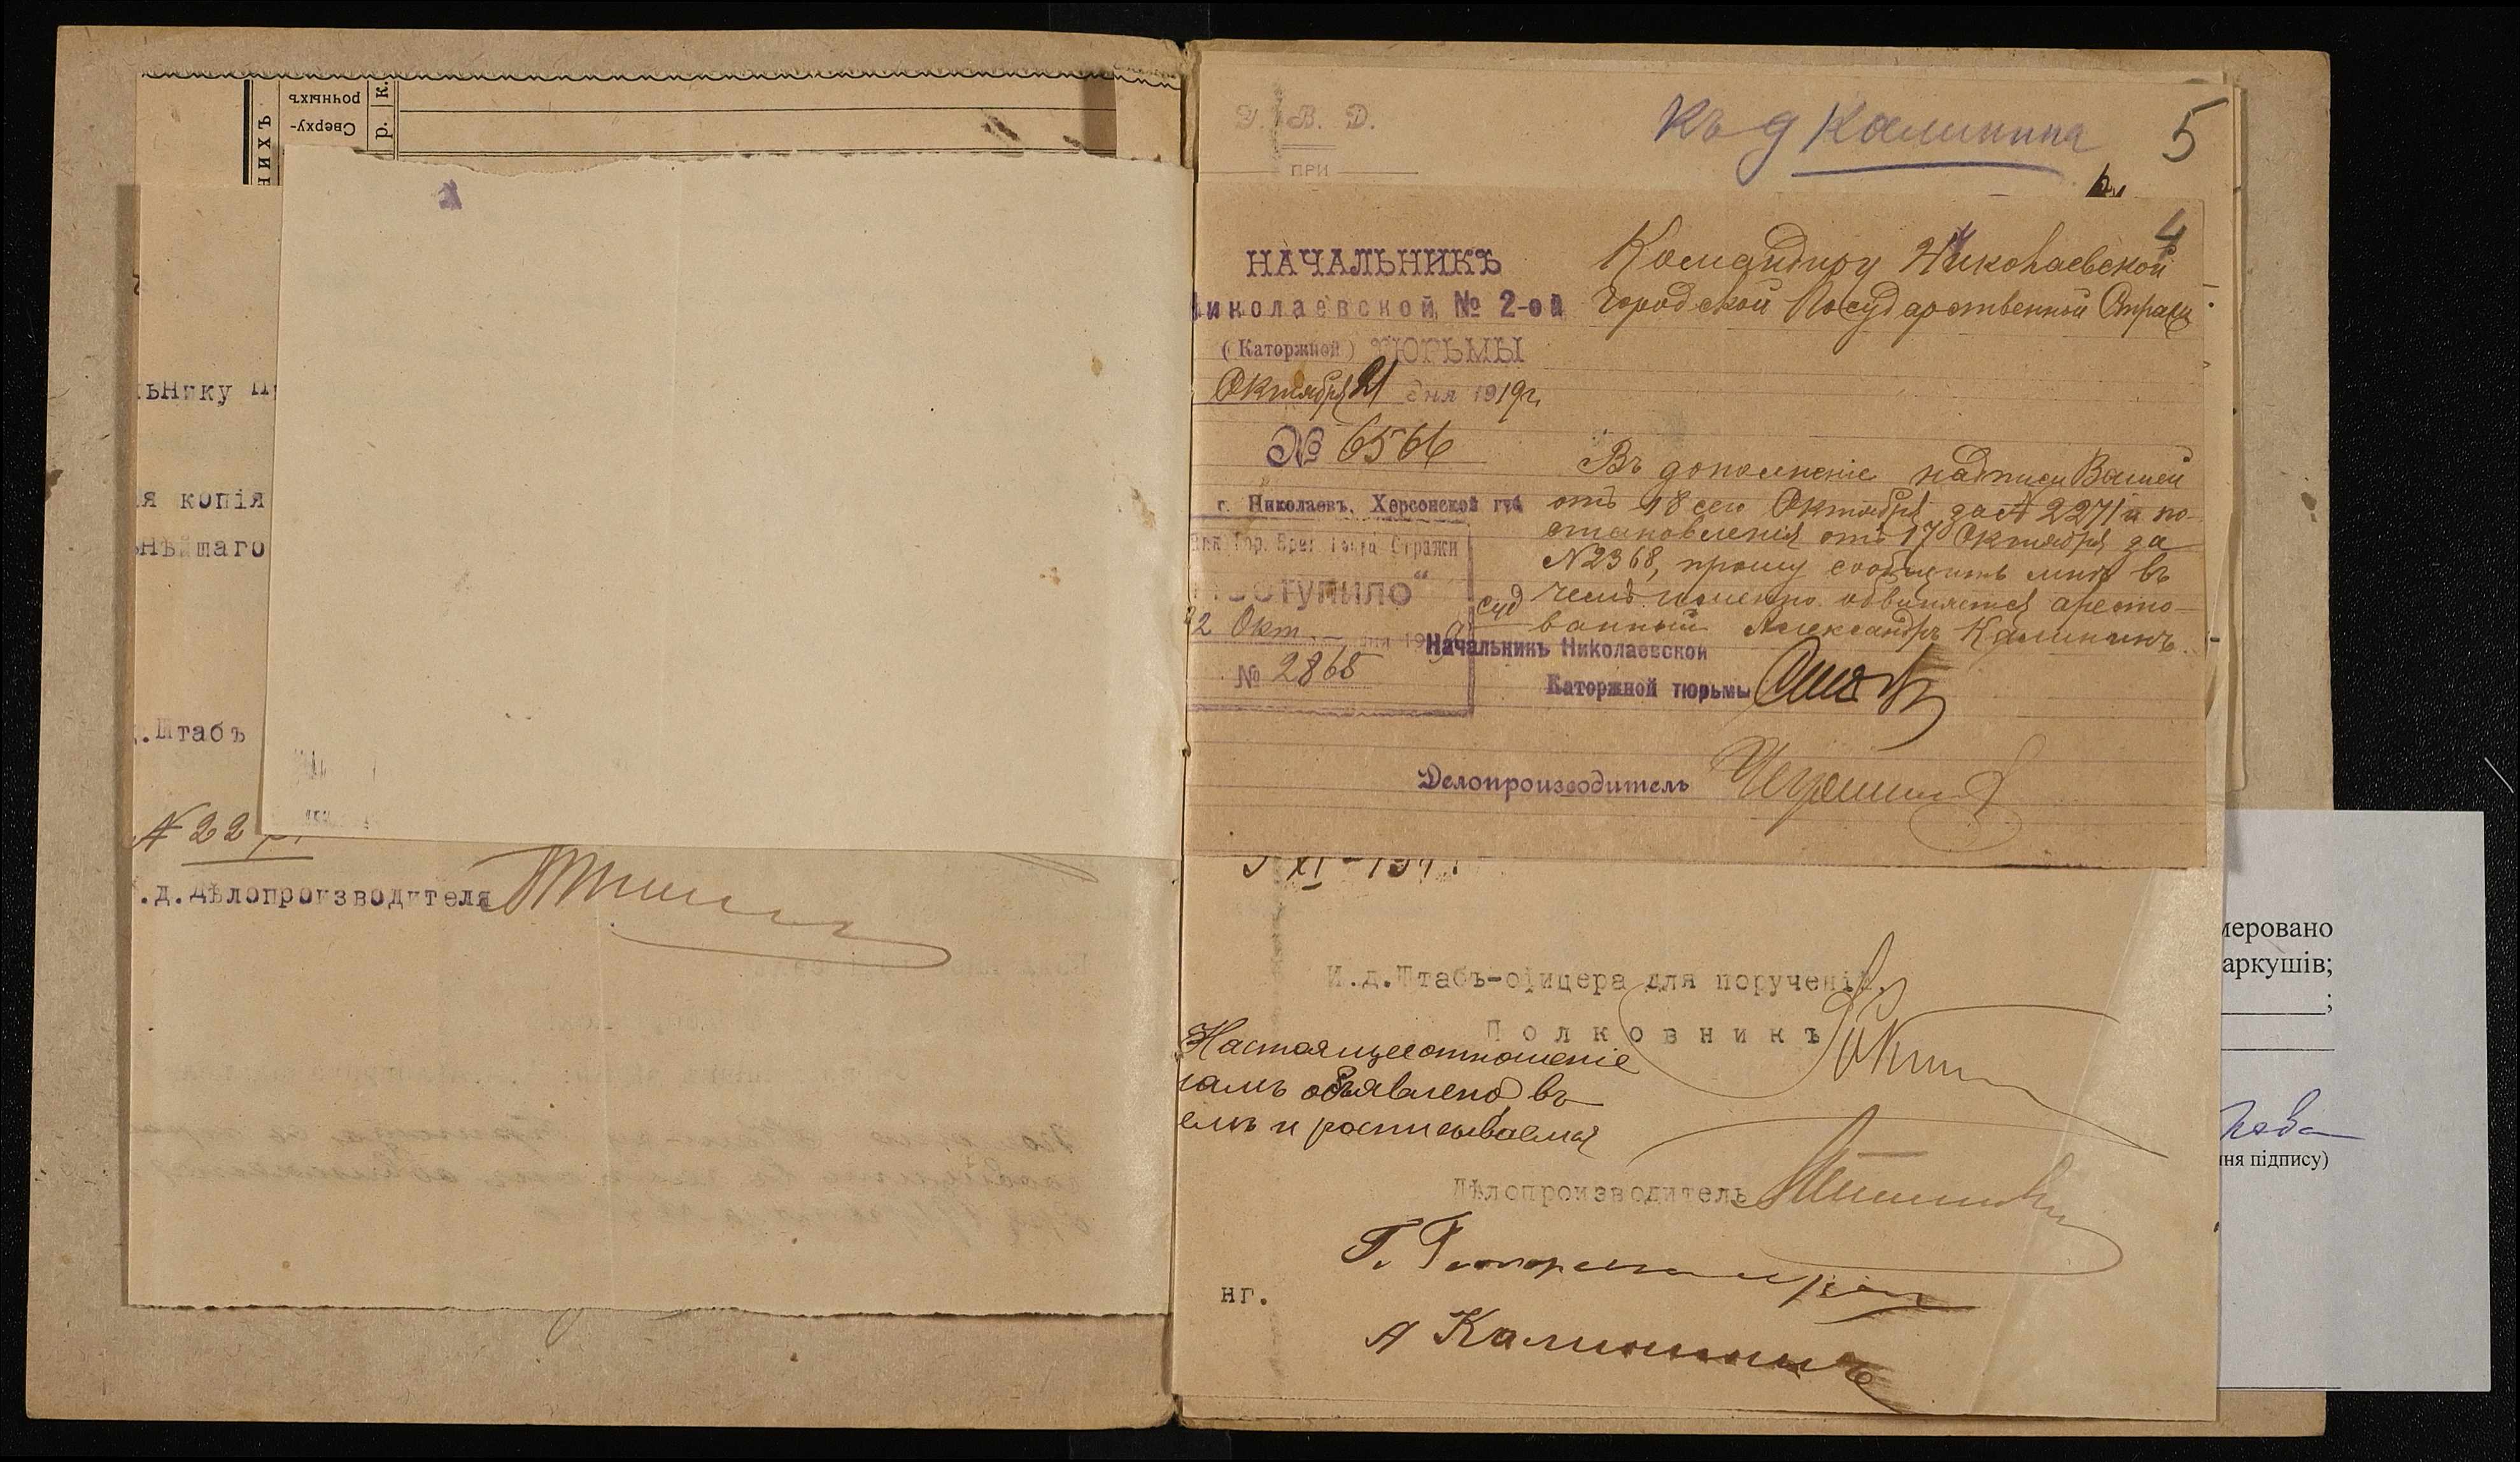 рочныхъ
Сверху-
нихъ
р. к.
ьнику
я копія
ьнѣйшаго
.Штабъ
№ 22
.д.Дѣлопроизводителя
В. Д.
ПРИ
Къ д Калинина
5
4
НАЧАЛЬНИКЪ
Николаевской № 2-ой
(Каторжной) ТЮРЬМЫ
Октября 21 дня 1919г.
№ 6566
г. Николаевъ, Херсонской губ
Командиру Николаевской
Городской Государственной Стражи
Въ дополненіе надписи Вашей
отъ 18 сего Октября за № 2271 и по-
становленія отъ 17 Октября за
№2368, прошу сообщить мнѣ въ
чемъ именно обвиняется аресто-
ванный Александръ Калининъ.
Гор. Бриг. Госуд. Стражи
„Поступило"
22 Окт. дня 1919
№ 2865
суд
Начальникъ Николаевской
Каторжной тюрьмы
Делопроизводитель
И.д.Штабъ-офицера для порученій,
Полковникъ
Настоящее отношеніе
намъ объявлено въ
емъ и росписываемся
Дѣлопроизводитель
нг.
А Калининъ
меровано
аркушів;
;
ня підпису)